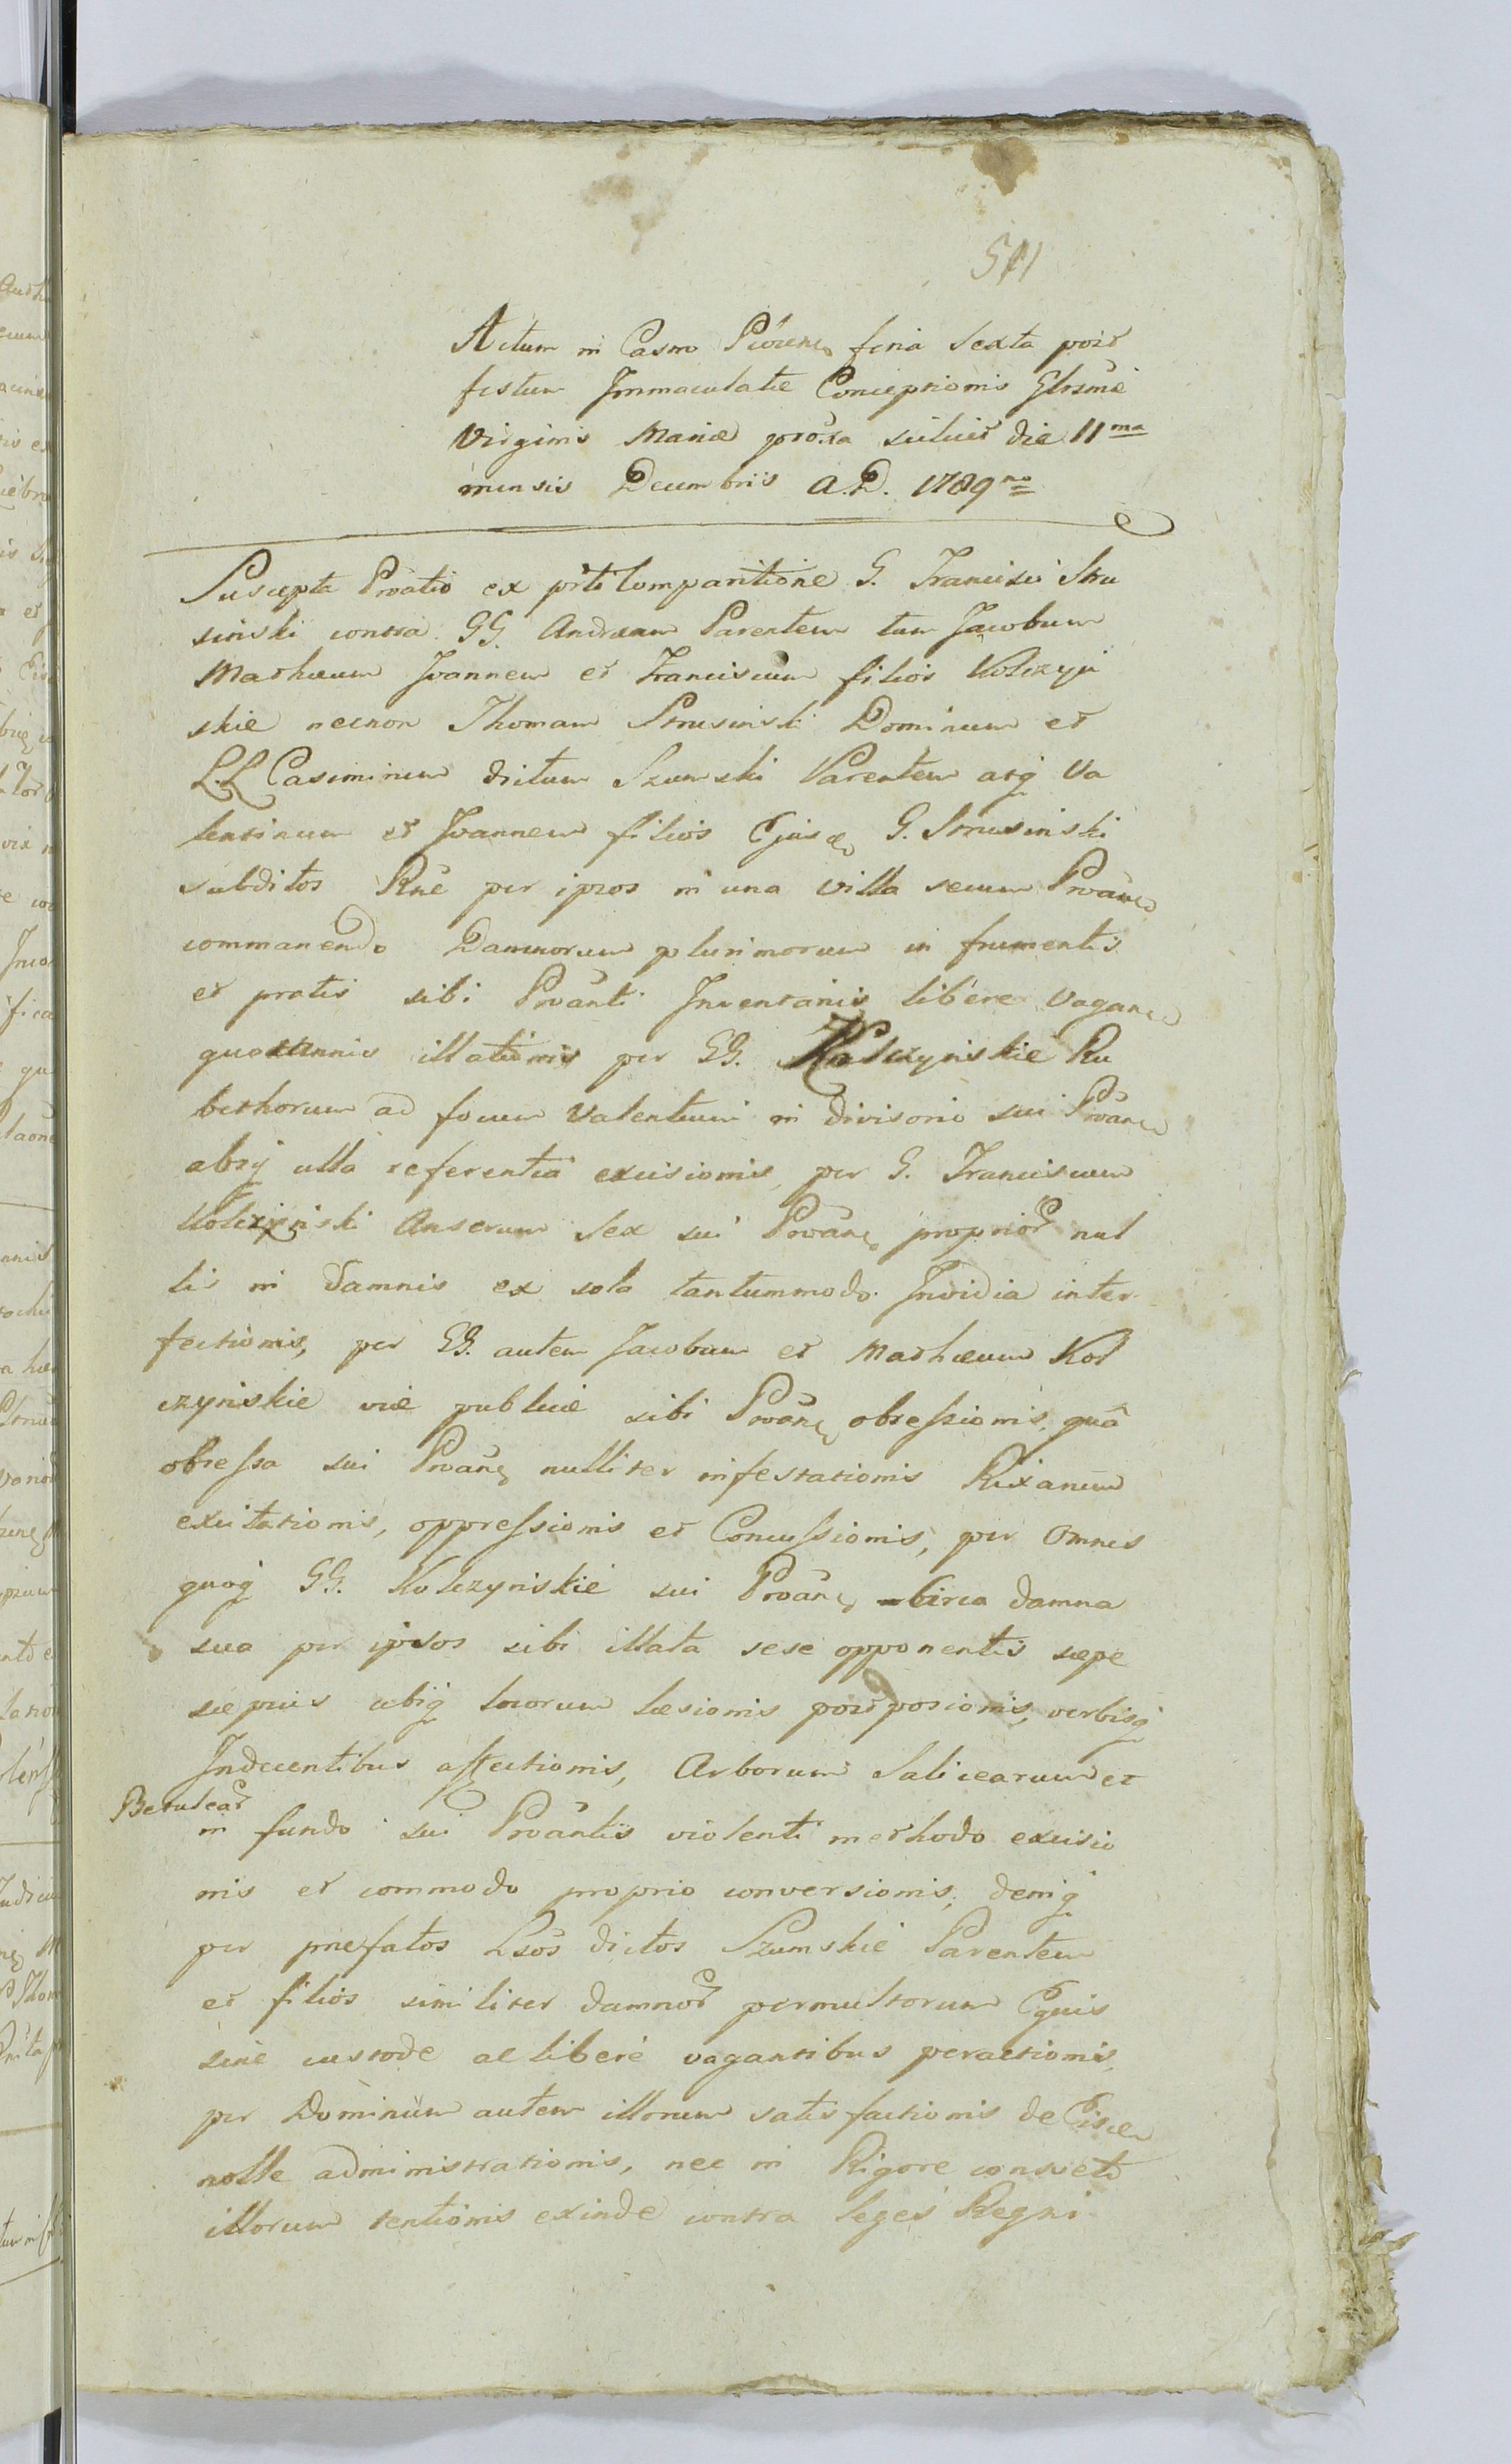 511
Actum in Casro Piözens feria Sexta posŕ
festum Immaculatæ Conceptionis Glrsmæ
Virginis Mariæ proxa scilicet die 11ma
mensis Decembris A.D. 1789no
Suscepta Proatio ex prti Comparitione G. Francisci Stru
sinski contra GG. Andream Parentem tum Jacobum
Mathæum Joannem et Franciscum filios Kolczyń
skie necnon Thomam Strusinski Dominum et
L.L Casimirum dictum Szumski Parentem atq Va
lentinum et Joannem filios Ejusd G. Strusinski
subditos Rne per ipsos in una Villa secum Proan
commanendo Damnorum plurimorum in frumentis
et pratis sibi Proanti Inventariis libere Vagan
quotannis illationis per GG. Kolczyńskie Ru
bethorum ad focum Valentium in divisorio sui Proan
absq ulla referentia excisionis, per G. Franciscum
Kolczyński Anserum Sex sui Proan proprior nul
lis in damnis ex sola tantummodo Invidia inter
fectionis, per GG. autem Jacobum et Mathæum Kol
czyńskie viæ publicæ sibi Proan obsessionis, quâ
obsessa sui Proan nulliter infestationis Rixarum
excitationis, oppressionis et Concussionis, per Omnes
quoq GG. Kolczyńskie sui Proan circa damna
sua per ipsos sibi illata sese opponentis sæpe
sæpius ubiq locorum læsionis postposionis, verbisq
Indecentibus affectionis, Arborum Salicearum et
Betulear
in fundo sui Proantis violenti methodo excisio
nis et commodo proprio conversionis, deniq
per præfatos Lsos dictos Szumskie Parentem
et filios similiter damnor permultorum Equis
sine custode ac libere vagantibus peractionis,
per Dominum autem illorum satisfactionis de Eisd
nolle administrationis, nec in Rigore consveto
illorum tentionis exinde contra leges Regni